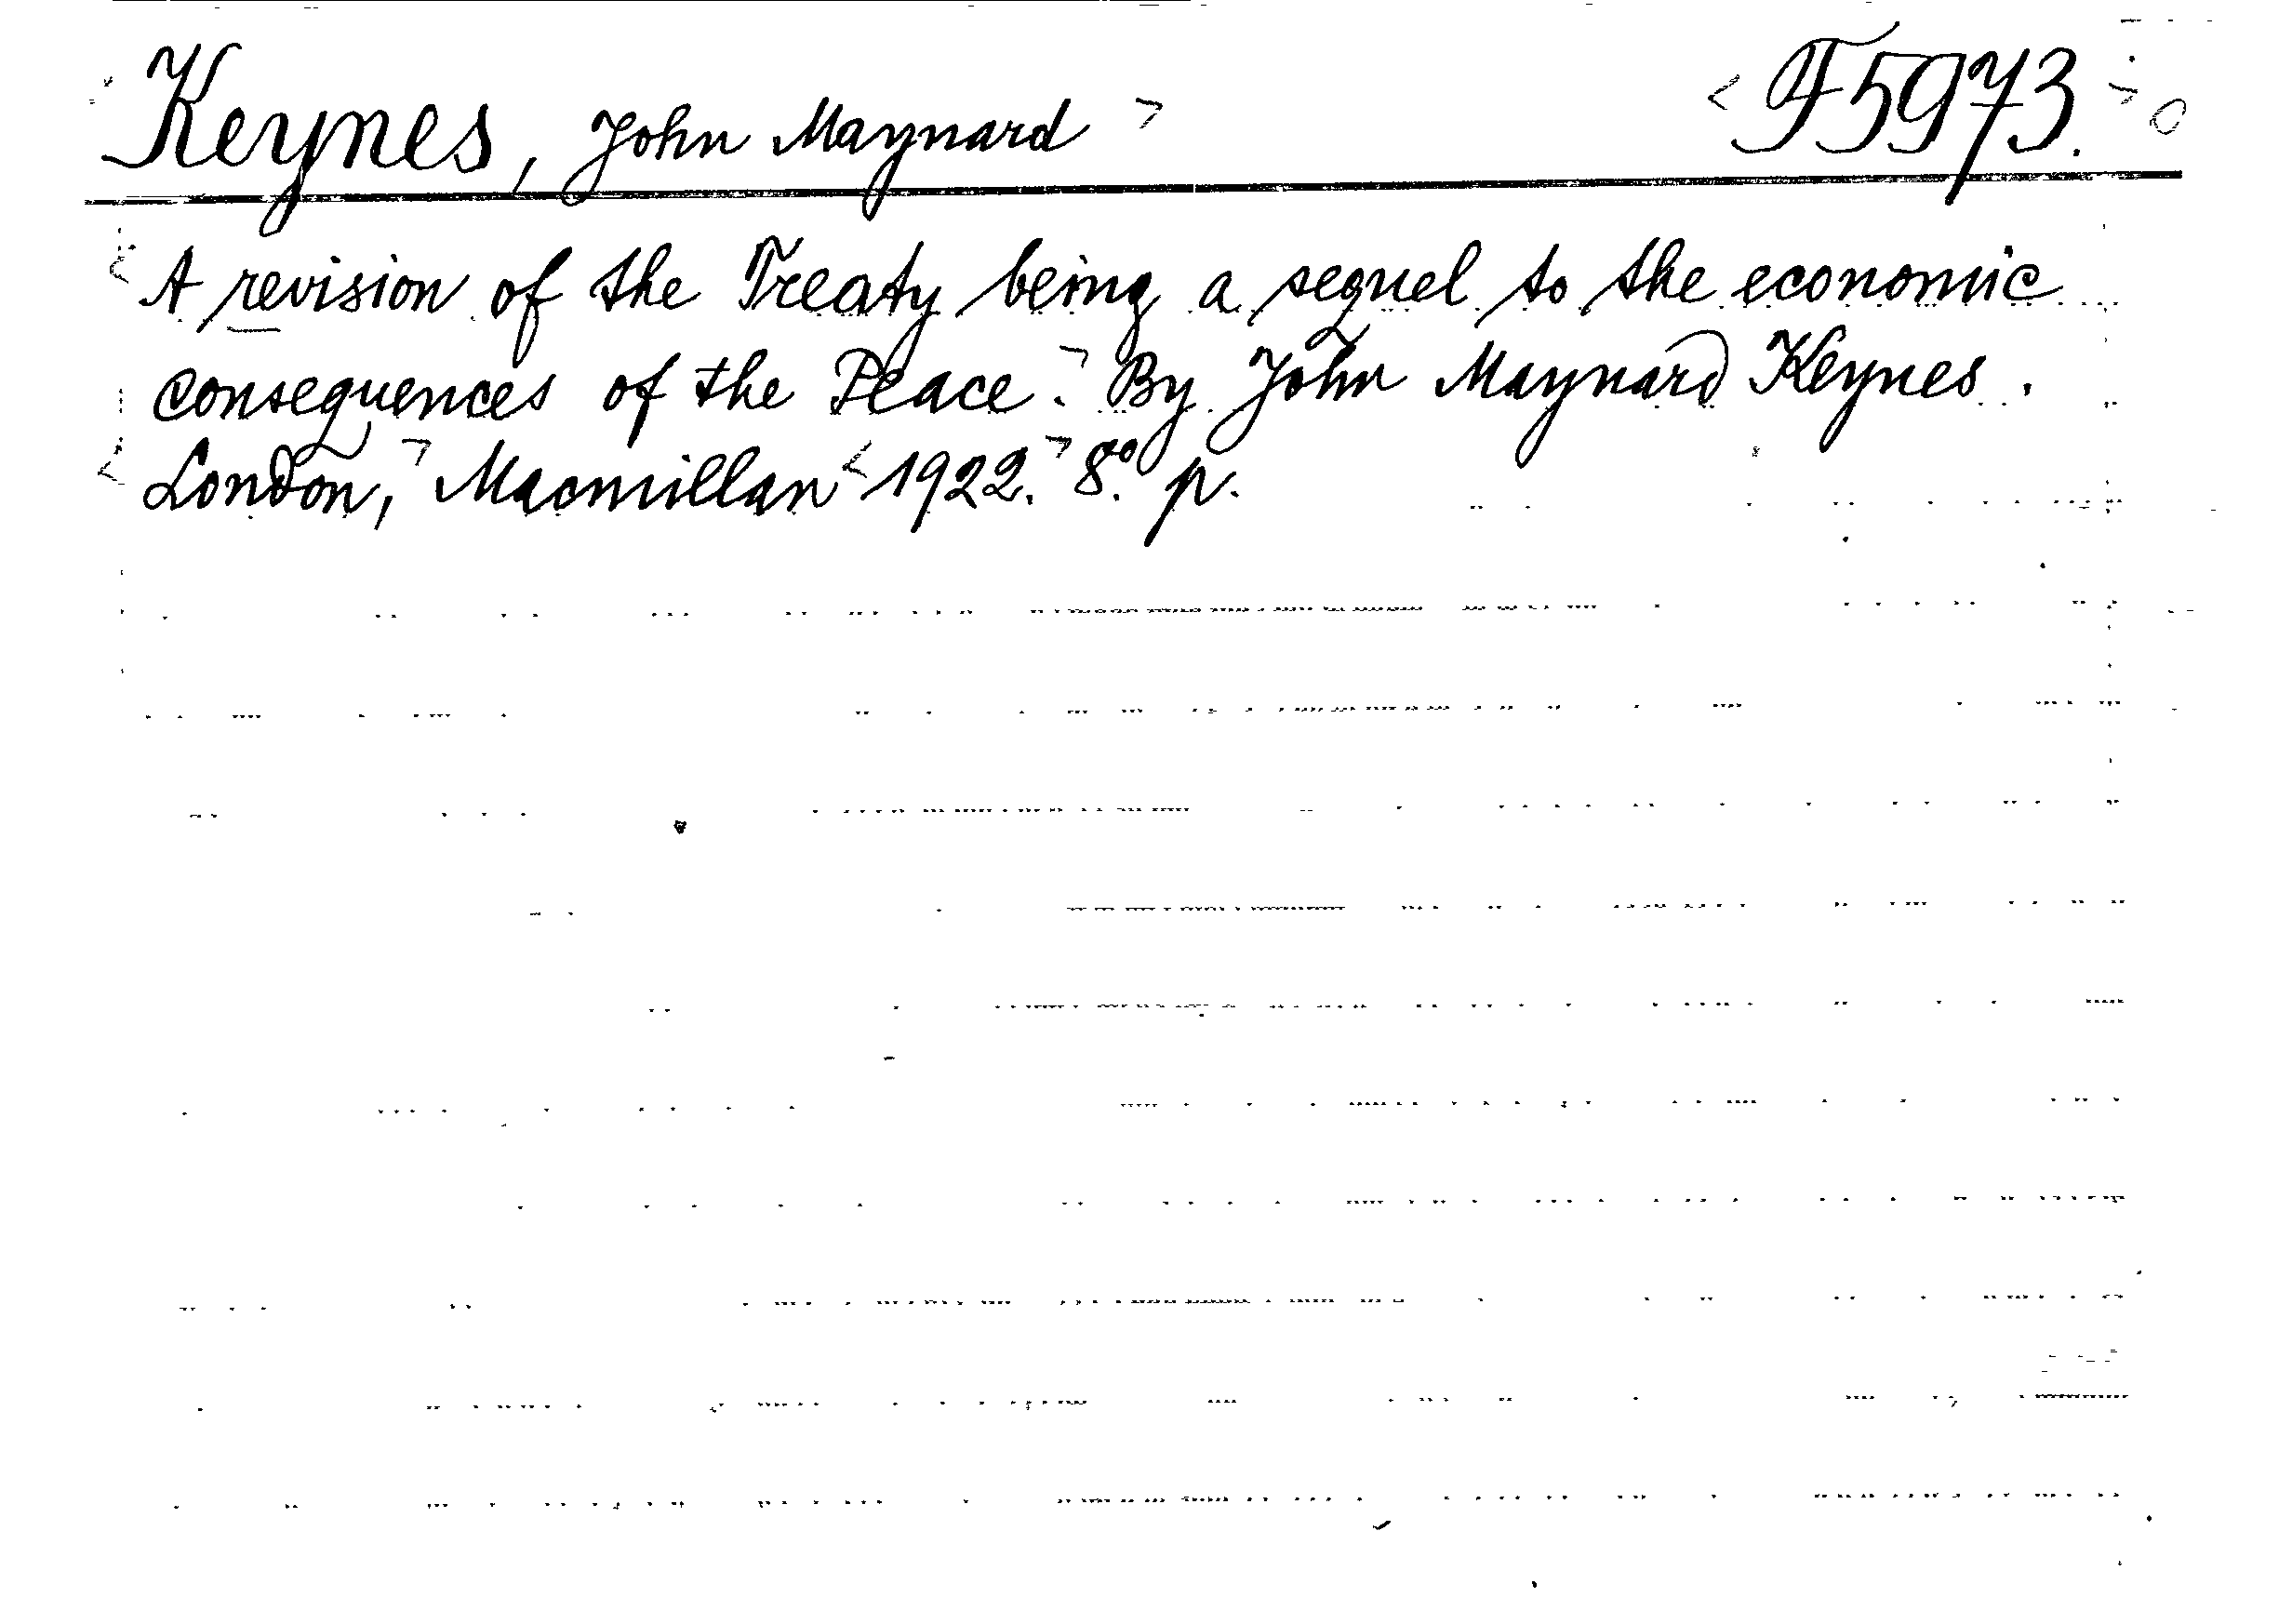 Keynes, John Maynard F5973.
A revision of the Treaty being a sequel to the economic
consequences of the Peace. By John Maynard Keynes.
London, Macmillan 1922. 8.° p.